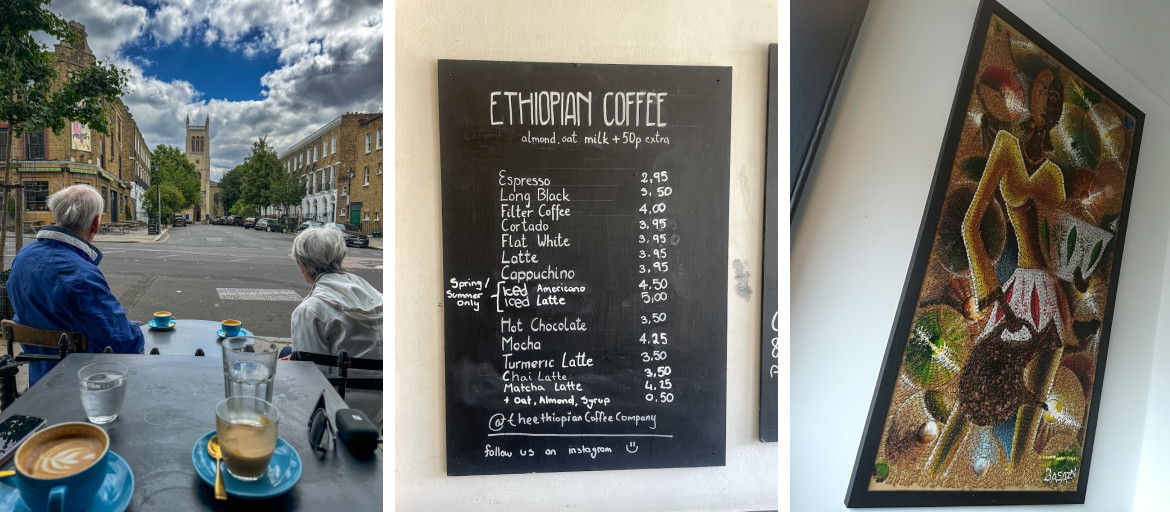 ETHIOPIAN COFFEE
almond, oat milk + 50p extra
Espresso 2,95
Long Black 3.50
Filter Coffee 4,00
Cortado 3,95
Flat White 3,95
Latte 3.95
Cappuchino 3,95
Spring/
Summer
only
Iced Americano 4,50
iced Latte 5,00
Hot Chocolate 3,50
Mocha 4.25
Turmeric Latte 3.50
Chai Latte 3,50
Matcha Latte 4.25
+ Oat, Almond, Syrup 0.50
@theethiopianCoffeeCompany
follow us on instagram